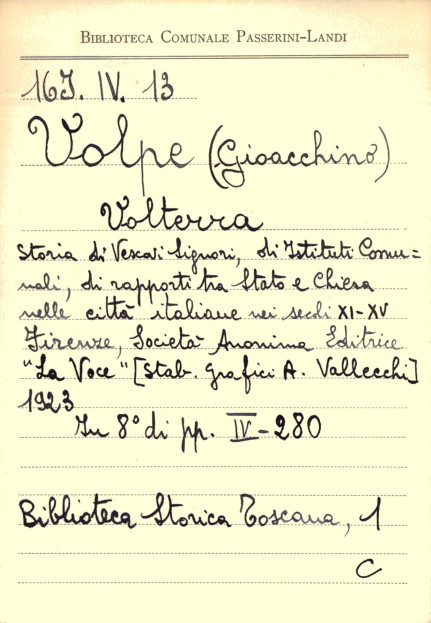 BIBLIOTECA COMUNALE PASSERINI-LANDI
16J. IV. 13
Volpe (Gioacchino)
Volterra
Storia di Vescovi Signori, di Istituti Comu=
nali, di rapporti tra Stato e Chiesa
nelle città italiane nei secoli XI-XV
Firenze, Società Anonima Editrice
"La Voce" [Stab. Grafici A. Vallecchi]
1923
In 8° di pp. IV-280
Biblioteca Storica Toscana, 1
C